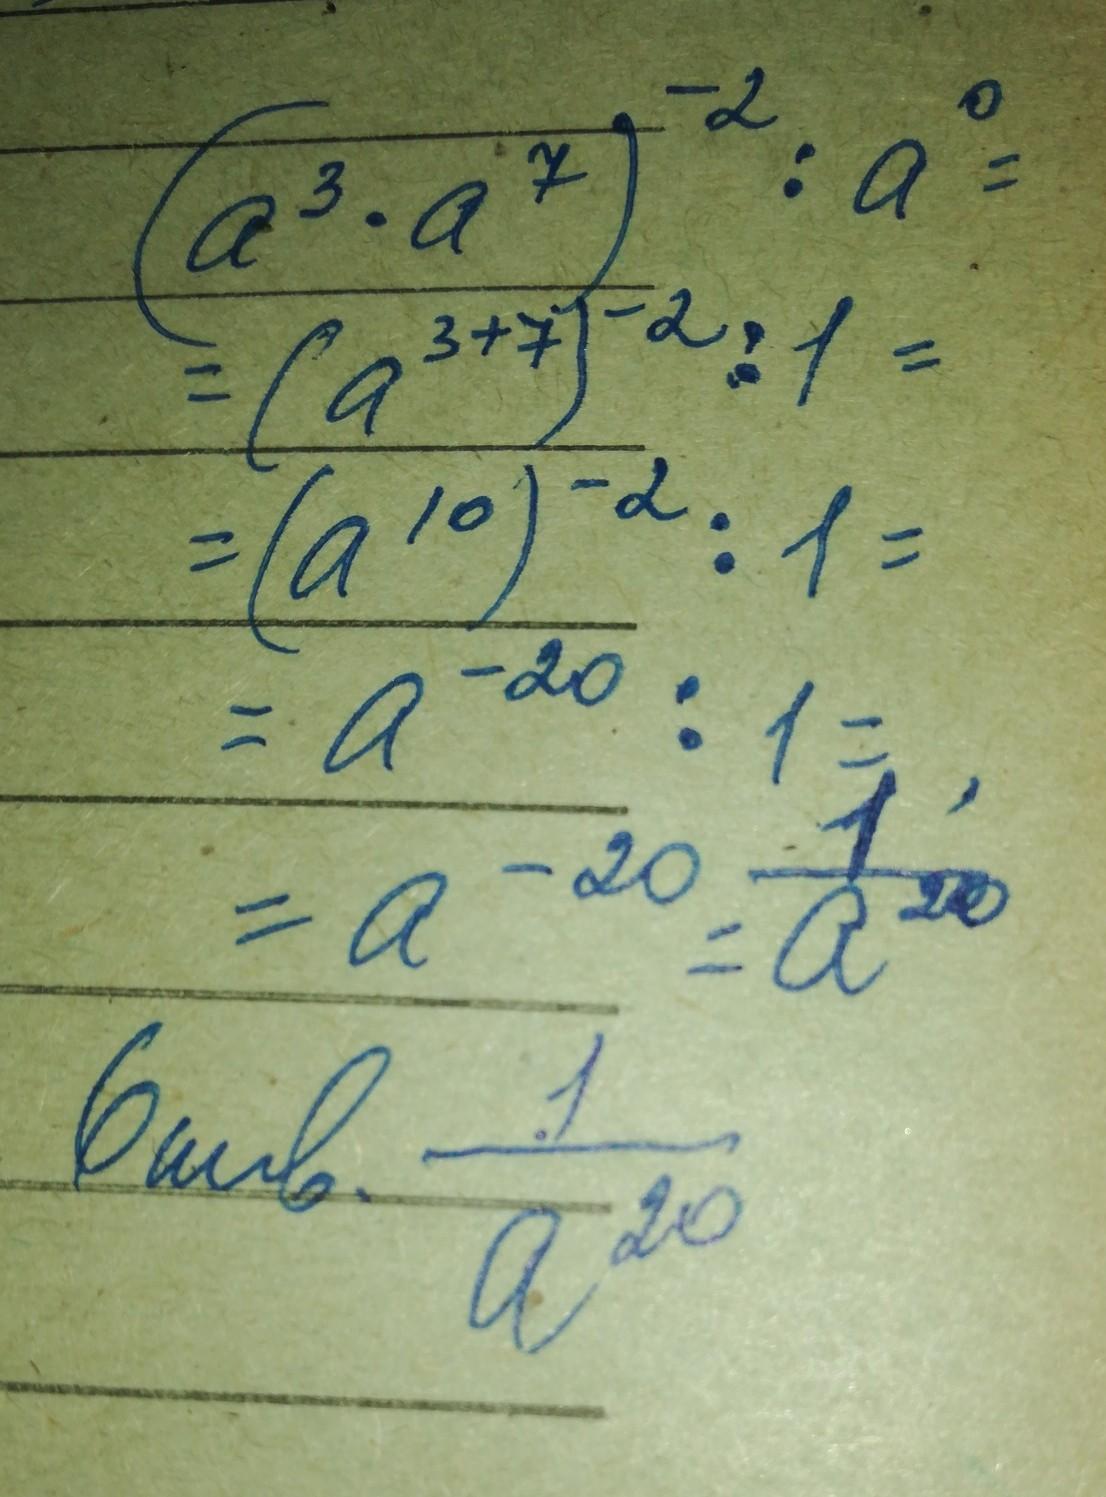 (a³ · a⁷)⁻² : a⁰ =
= (a³⁺⁷)⁻² : 1 =
= (a¹⁰)⁻² : 1 =
= a⁻²⁰ : 1 =
= a⁻²⁰ = 1/a²⁰
Ответ. 1/a²⁰